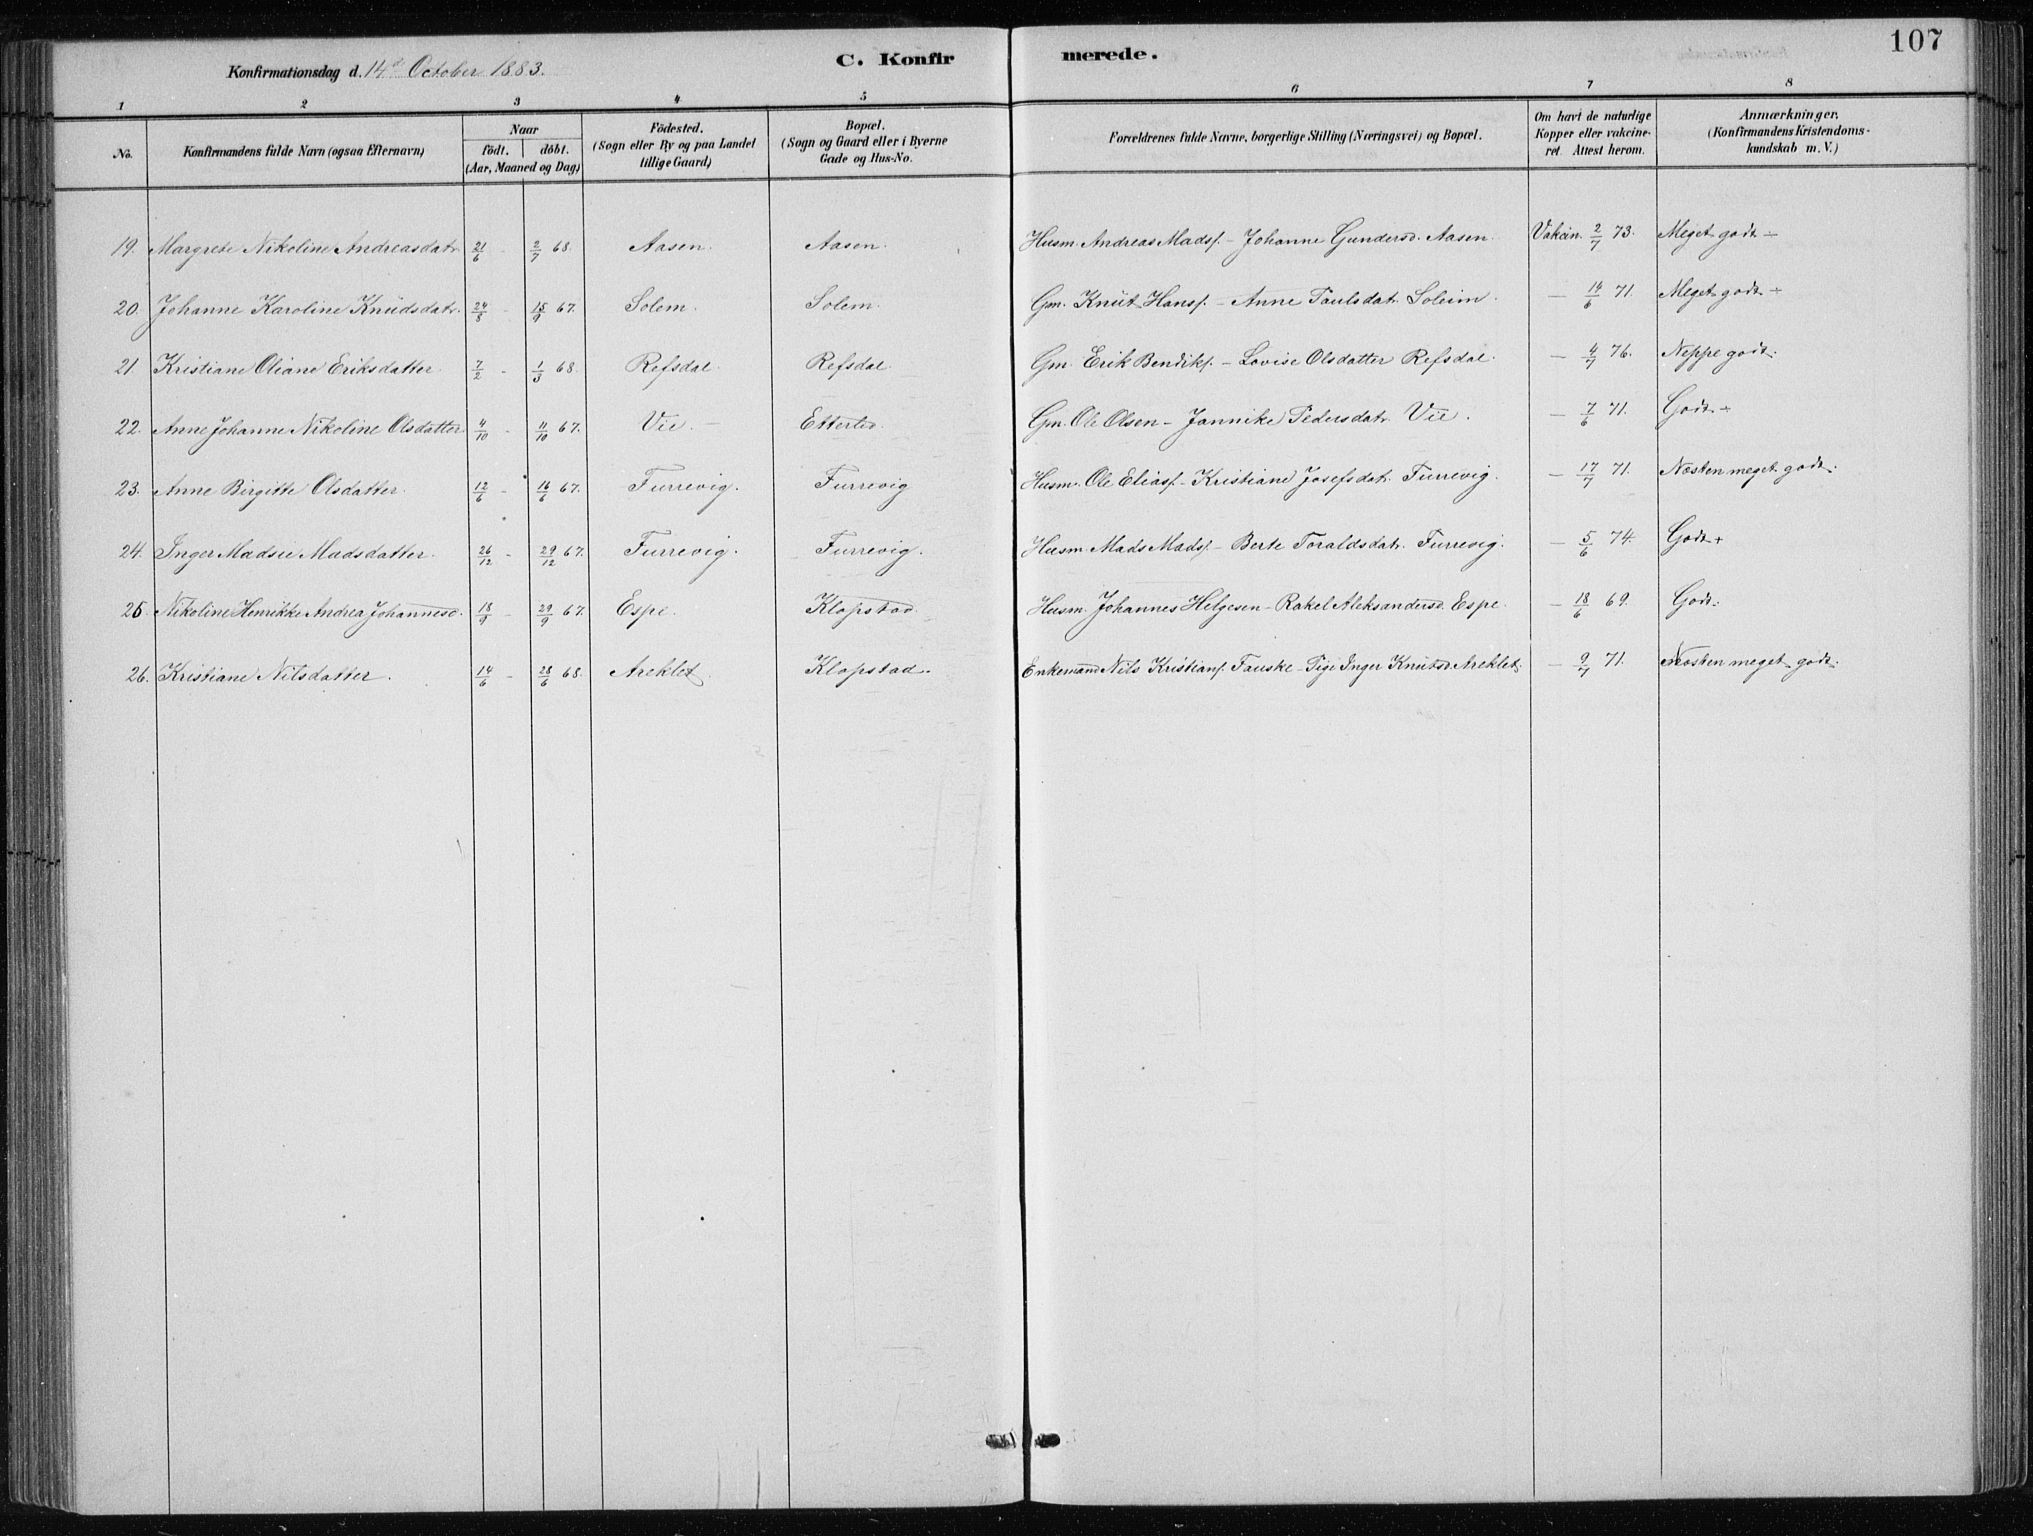 107
Konfirmationsdag d. 14de October 1883.
C. Konfirmerede.
1 2 3 4 5 6 7 8
No.
Konfirmandens fulde Navn (ogsaa Efternavn)
Naar
födt. döbt.
(Aar, Maaned og Dag)
Födested.
(Sogn eller By og paa Landet
tillige Gaard)
Bopæl.
(Sogn og Gaard eller i Byerne
Gade og Hus-No.
Forældrenes fulde Navne, borgerlige Stilling (Næringsvei) og Bopæl.
Om havt de naturlige
Kopper eller vakcine-
ret. Attest herom.
Anmærkninger,
(Konfirmandens Kristendoms-
kundskab m. V.)
19. Margrete Nikoline Andreasdatr 21/6 - 2/7 68. Aasen. Aasen. Husm. Andreas Madsf. - Johanne Gundersd. Aasen. Vakcin. 2/7 73. Meget godt ÷
20. Johanne Karoline Knudsdatr. 24/8 - 15/9 67. Solem. Solem. Gm. Knut Hansf. - Anne Paulsdat. Soleim. - 14/6 71. Meget godt ÷
21 Kristiane Oliane Eriksdatter 7/2 - 1/3 68. Refsdal. Refsdal Gm. Erik Bendiksf. - Lovise Olsdatter Refsdal. - 4/7 76. Neppe godt.
22. Anne Johanne Nikoline Olsdatter 4/10 - 11/10 67. Vie. - Etterted. Gm. Ole Olsen - Jannike Pedersdatr. Vie. - 7/6 71. Godt ÷
23. Anne Birgitte Olsdatter. 12/6 - 16/6 67. Furrevig. Furrevig Husm. Ole Eliasf. - Kristiane Josefsdat. Furrevig. - 17/7 71. Næsten meget godt.
24. Inger Madsie Madsdatter. 26/12 - 29/12 67. Furrevig. Furrevig. Husm. Mads Madsf. - Berte Toraldsdatr. Furrevig. - 5/6 74. Godt +
25. Nikoline Henrikke Andrea Johannesd. 18/9 - 29/9 67. Espe. Klopstad. Husm. Johannes Helgesen - Rakel Aleksandersd. Espe. - 18/6 69. Godt.
26. Kristiane Nilsdatter. 14/6 - 28/6 68. Areklet. Klopstad. Enkemand Nils Kristiansf. Fauske - Pige Inger Knutsd. Areklet. - 9/7 71. Næsten meget godt.